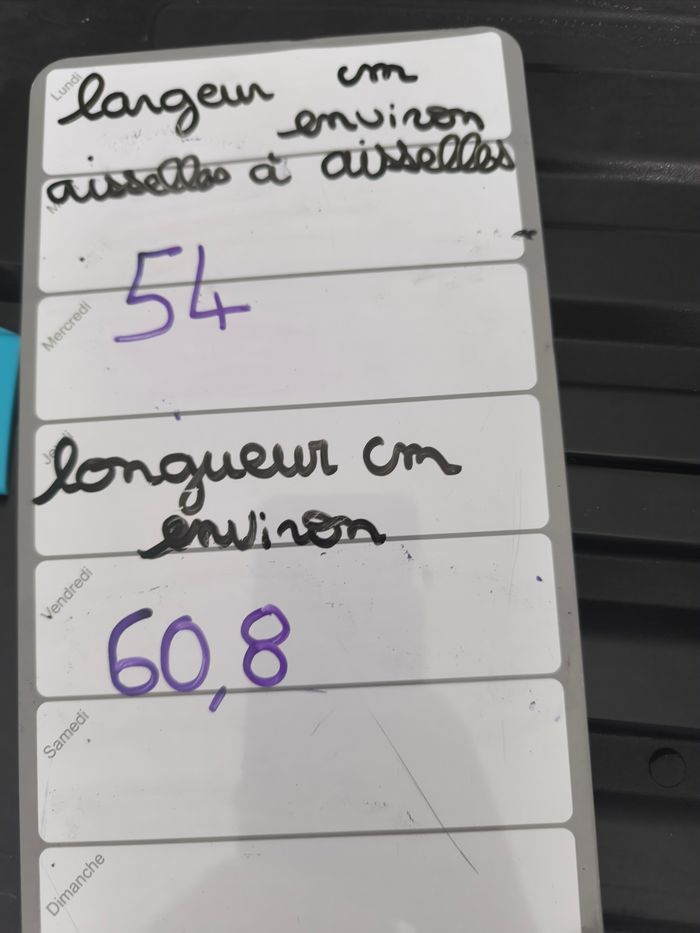 Lundi
largeur cm
environ
aisselles à aisselles
54
Mercredi
longueur cm
environ
60,8
Vendredi
Samedi
Dimanche